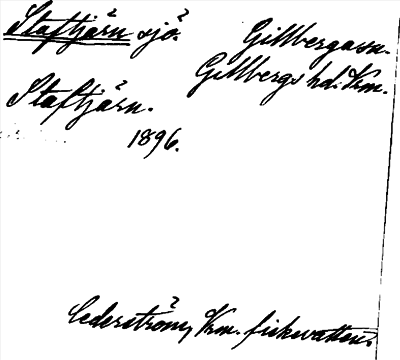 Staftjärn sjö.
Gillberga sn.
Gillbergs hd. Vrm.
Staftjärn.
1896.
Cederström, Vrm. fiskvatten.